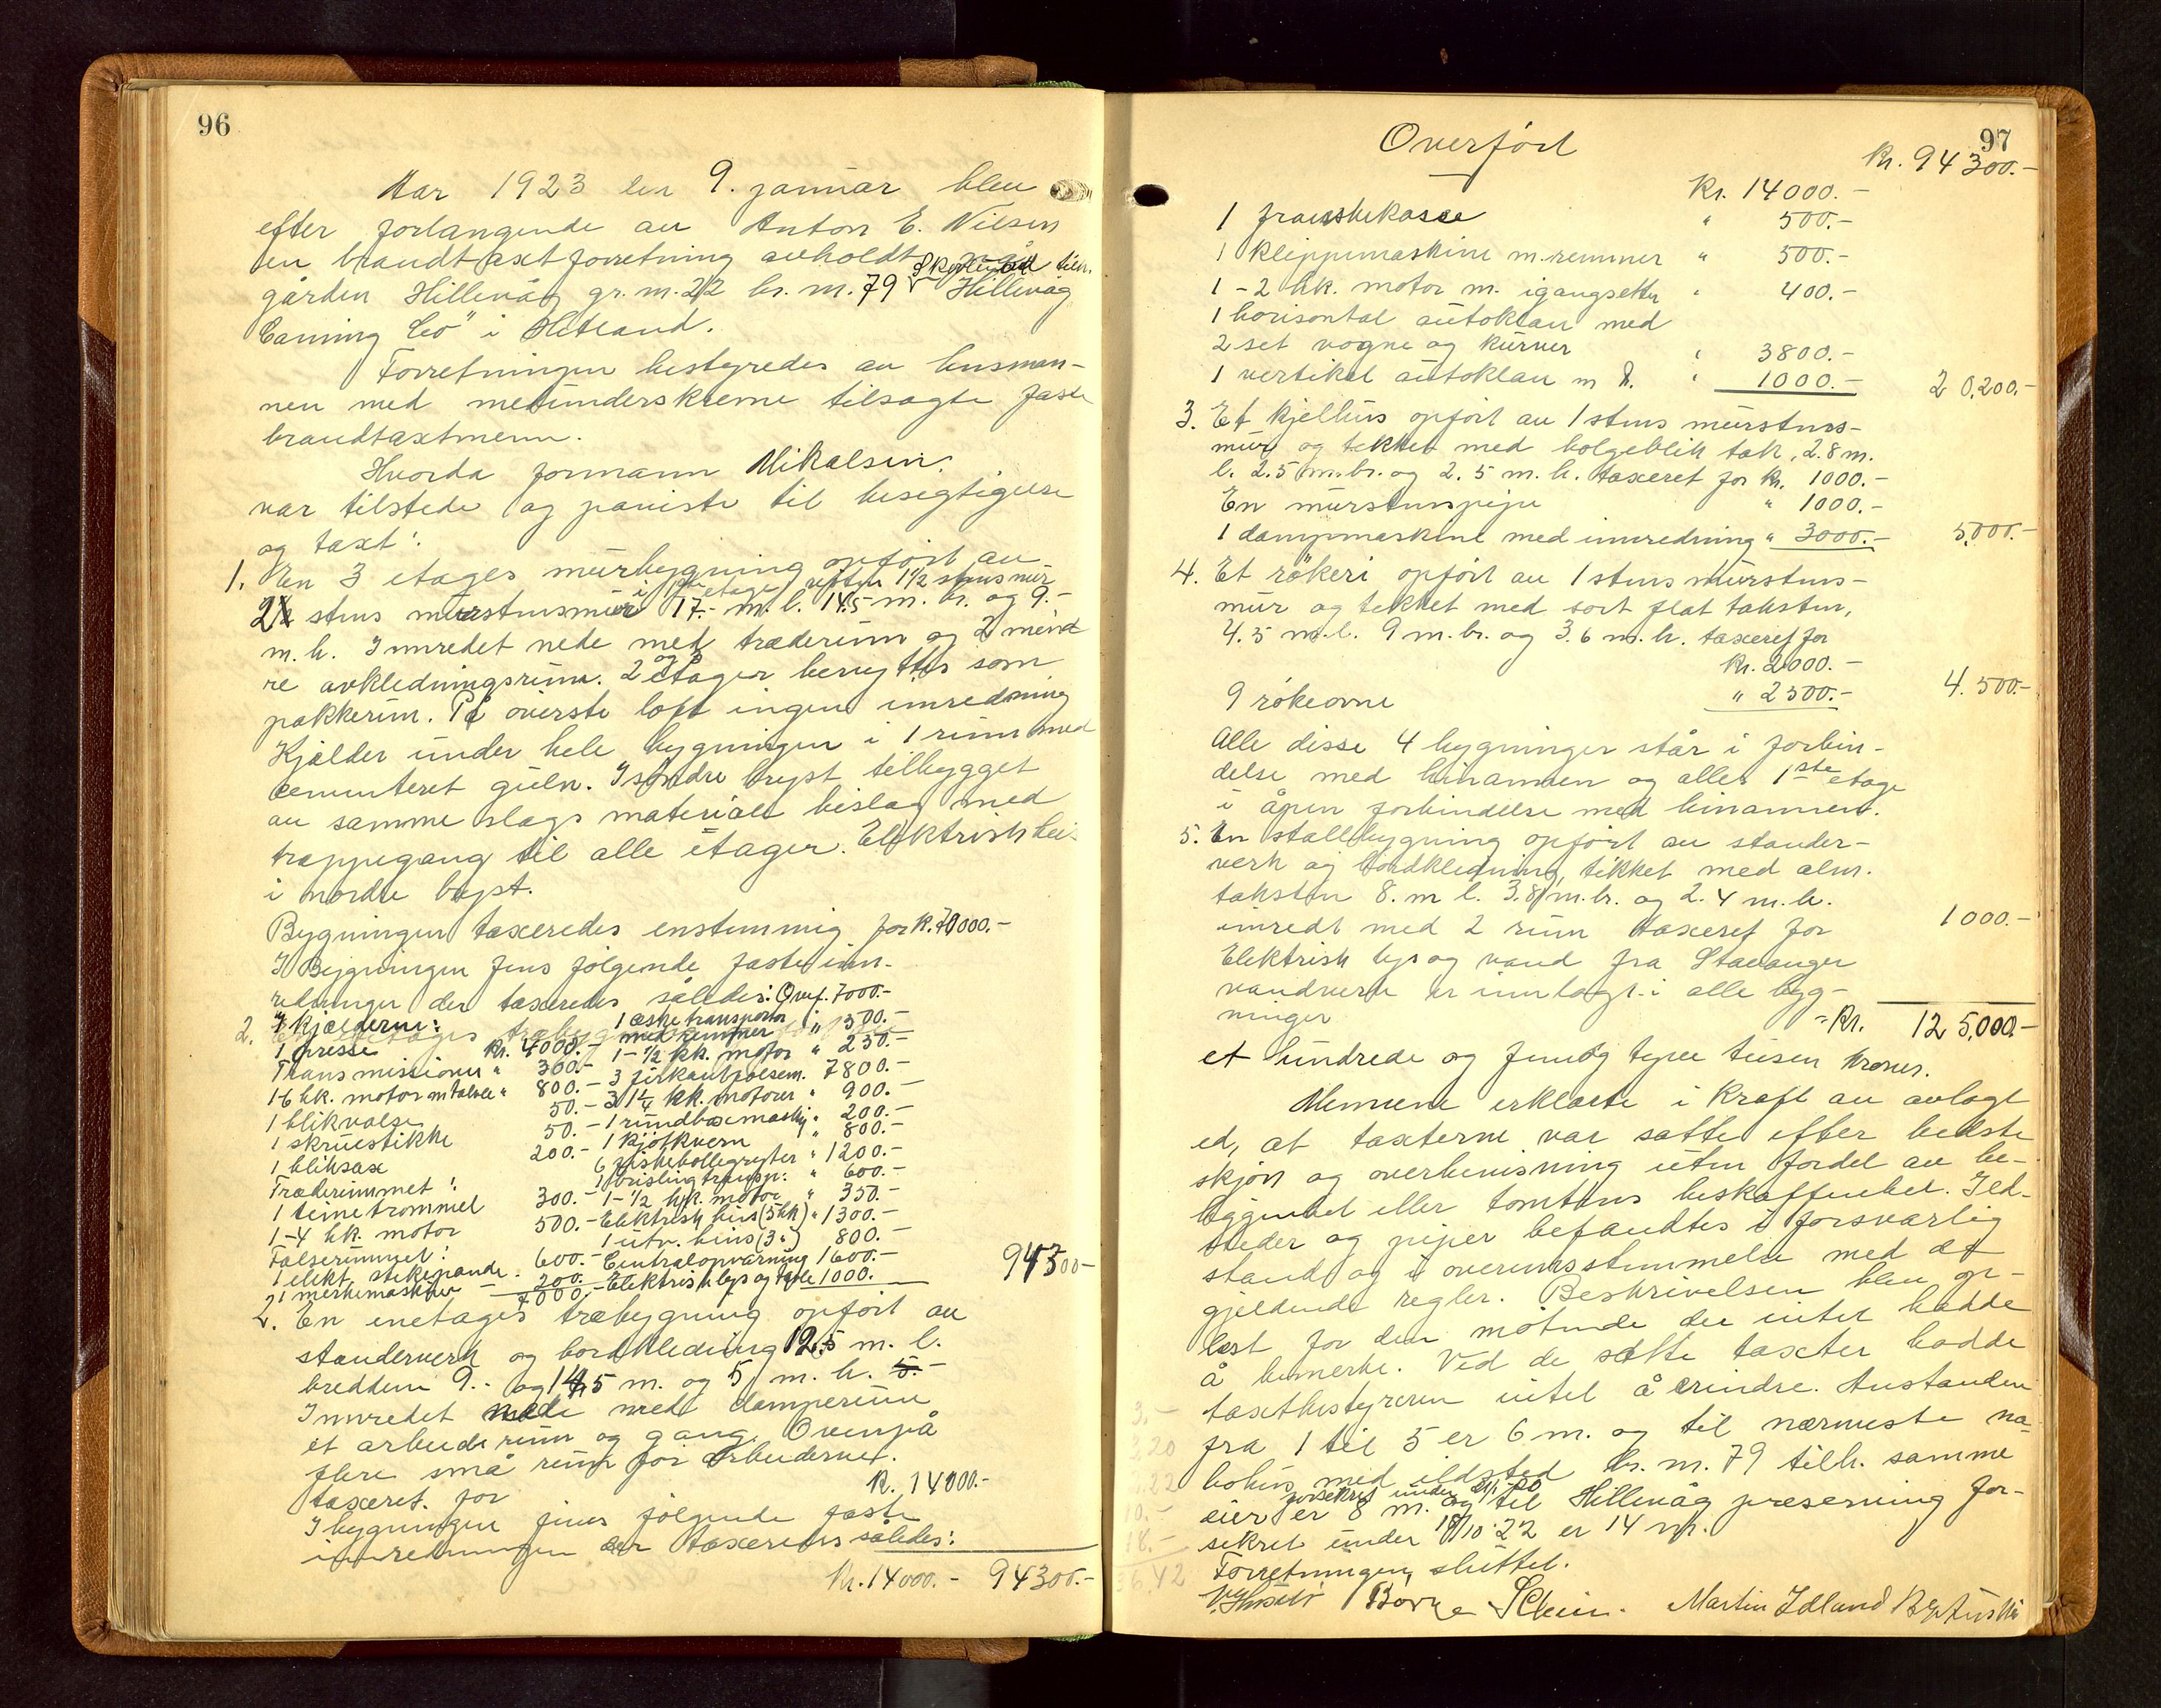 96
Aar 1923 den 9. januar blev
efter forlangende av Anton E. Nilsen
en brandtaxtforretning avholdt på
gården Hillevåg gr. nr. 22 br. nr. 79 tilh. Hillevåg
Canning Co" i Hetland.
Forretningen bestyredes av lensman-
nen med medunderskrevne tilsagte faste
brandtaxtmenn.
Hvorda formann Mikalsen.
var tilstede og paviste til besigtigelse
og taxt:
1. En 3 etages murbygning opført av
i 1ste etage resten 1 1/2 stens mur
2 stens murstensmur 17.- m. l. 14.5 m. br. og 9.-
m. h. Innredet nede med træderum og 2 mind
re avkledningsrum. 2 og 3 etager benyttes som
pakkerum. På øverste loft ingen innredning
Kjelder under hele bygningen i 1 rum med
cementeret gulv. I søndre bryst tilbygget
av samme slags materiale bislag med
trappegang til alle etager. Elektrisk hei-
i nordre bryst.
Bygningen taxeredes enstemmig for K. 70000.-
I Bygningen fins følgende faste inn-
redninger der taxeredes således: Overf. 7000.-
I kjelderne: 1 æske transportør " 500.-
med remmer
1 presse Kr. 4000.- 1-1/2 hk. motor " 250.-
Transmissioner " 300.- 3 firkantfalsem. 7800.-
1-6 hk. motor m tavle " 800.- 3 1 1/4 hk. motorer " 900.-
1 blikvalse 50.- 1 rundbøiemaskj. " 200.-
1 skruestikke 50.- 1 kjøtkvern " 800.-
1 bliksax 200.- 6 fiskebollegryter " 1200.-
Træderummet: 1 brislingtransp. " 600.-
1 teinetrommel 300.- 1-1/2 hk. motor " 350.-
1-4 hk. motor 500.- Elektrisk heis (5 hk) " 1300.-
Falserummet: 1 utv. heis (3 ") 800.-
1 elekt. stekepande 600.- Centralopvarmning 1600.-
2 merkemaskiner 200.- Elektrisk lys og tavle 1000.-
7000.- 94300.-
2. En enetages træbygning opført av
standerverk og bordkledning 12.5 m. l.
bredden 9.- og 14.5 m. og 5 m. h.
Innredet nede med damperum
et arbeidsrum og gang. Ovenpå
flere små rum for arbeiderne.
taxeret for K. 14000.-
I bygningen fins følgende faste
innredninger der taxeredes således:
Kr. 14000.- 94300.-
97
Overført
Kr. 94300.-
Kr. 14000.-
1 franskekasse " 500.-
1 Klippemaskine m. remmer " 500.-
1-2 hk. motor m. igangsetter " 400.-
1 horisontal autoklav med
2 set vogne og kurver " 3800.-
1 vertikal autoklav m d. " 1000.- 20,200.-
3. Et kjelhus opført av 1 stens murstens-
mur og tekket med bølgeblik tak, 2.8 m.
l. 2.5 m. br. og 2.5 m. h. taxeret for Kr. 1000.-
En murstenspipe " 1000.-
1 dampmaskine med innredning " 3000.- 5,000.-
4. Et røkeri opført av 1 stens murstens-
mur og tekket med sort flat taksten,
4.5 m. l. 9 m. br. og 3.6 m. h. taxeret for
Kr. 2000.-
9 røkeovne " 2500.- 4.500.-
Alle disse 4 bygninger står i forbin-
delse med hinannen og alles 1ste etage
i åpen forbindelse med hinannen.
5. En stallbygning opført av stander-
verk og bordkledning, tekket med alm.
taksten 8. m l. 3.8 m. br. og 2.4 m. h.
innredt med 2 rum taxeret for 1000.-
Elektrisk lys og vand fra Stavanger
vandverk er inntagt i alle byg-
ninger
Kr. 125,000.-
et hundrede og fem og tyve tusen kroner.
Mennene erklærte i kraft av avlagt
ed, at taxterne var satte efter bedste
skjøn og overbevisning uten fordel av be-
liggenhet eller tomtens beskaffenhet. Ild-
steder og piper befandtes i forsvarlig
stand og i overensstemmelse med de
gjeldende regler. Beskrivelsen blev op-
lest for den møtende der intet hadde
å bemerke. Ved de satte taxter hadde
taxtbestyreren intet å erindre. Avstanden
fra 1 til 5 er 6 m. og til nærmeste na-
bohus med ildsted br. nr. 79 tilh. samme
eier er 8 m. og til Hillevåg preserving for-
sikret under 18/10 22 er 14 m.
Forretningen sluttet.
Børge Martin Idland